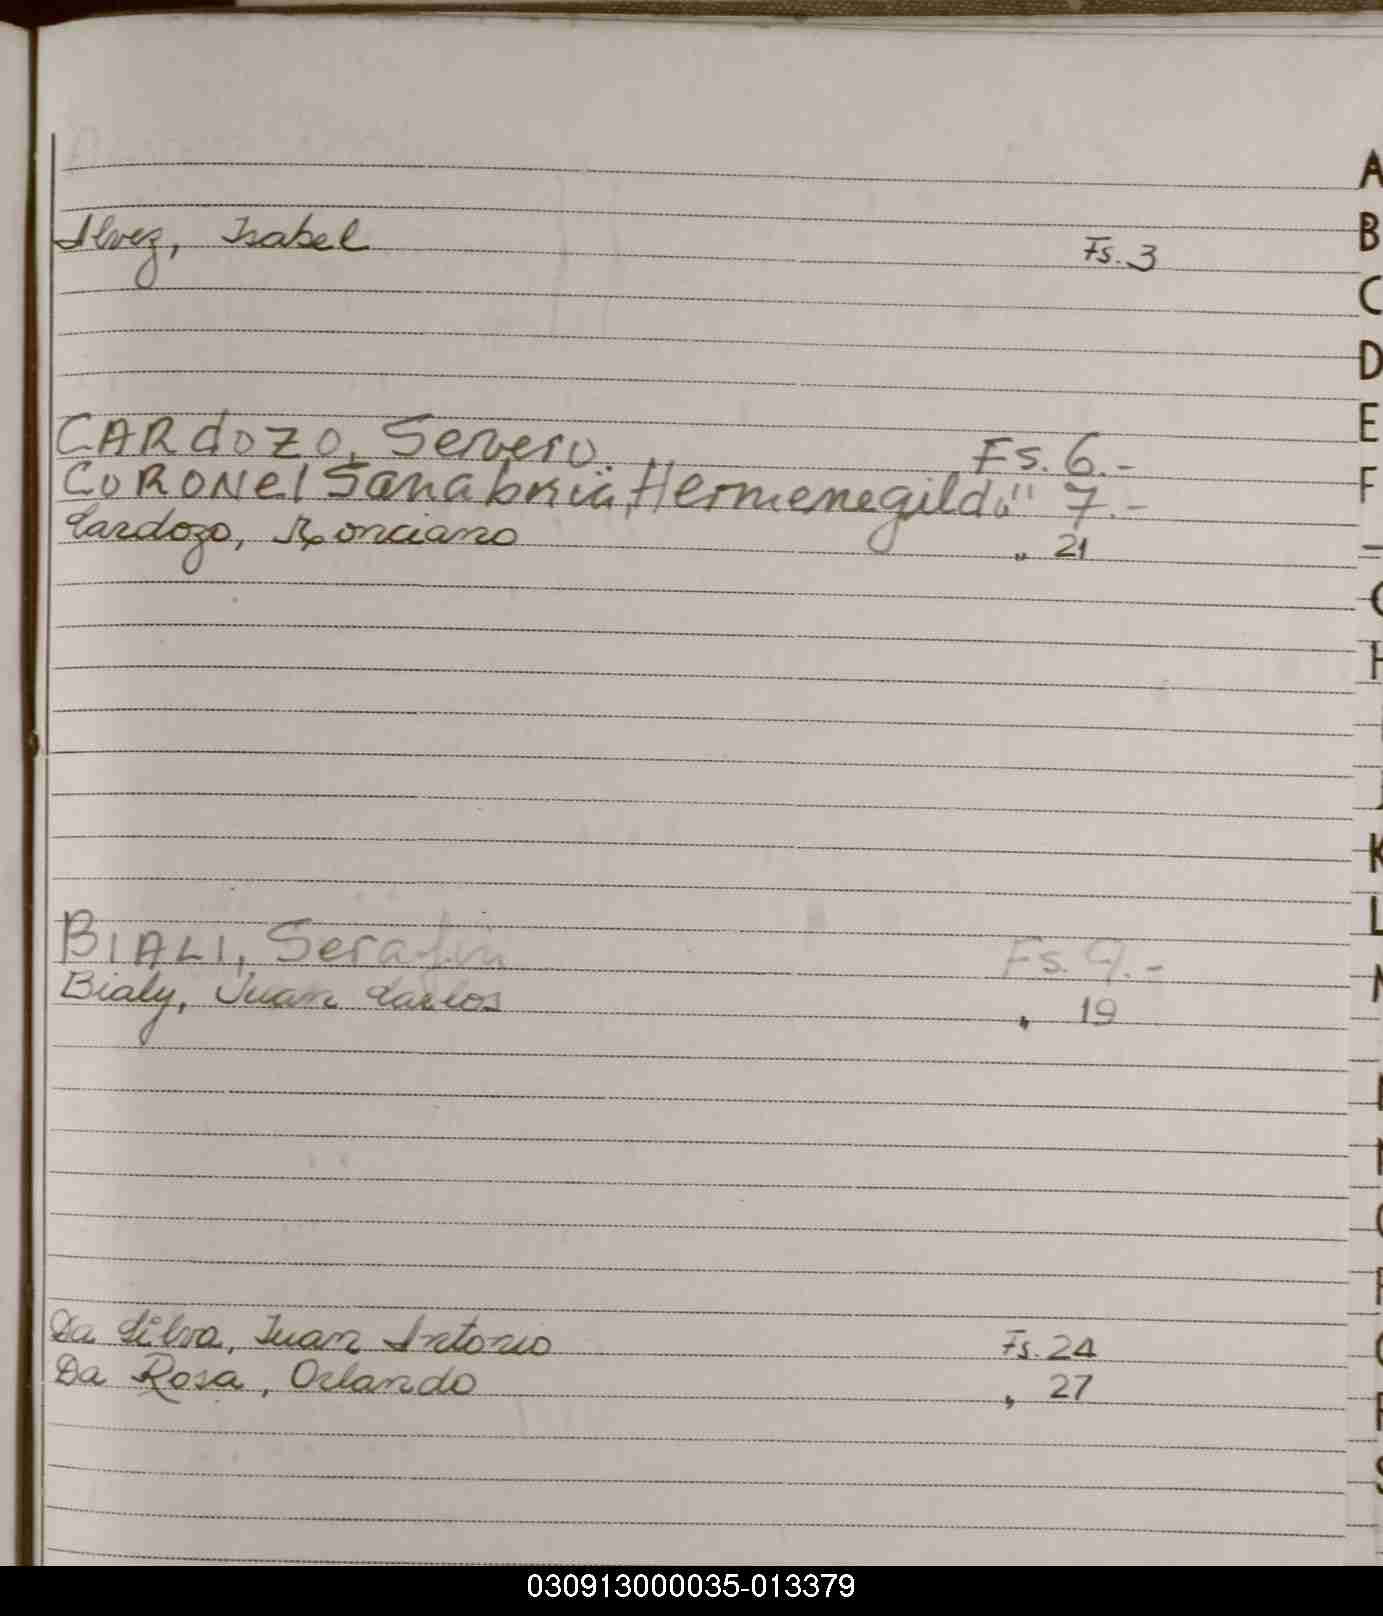 Alvez, Isabel Fs. 3
CARdOZO, Severo. Fs. 6.-
CORONEl Sanabria, Hermenegildo " 7.-
Cardozo, Ponciano " 21
BIALI, Serafin Fs. 9.-
Bialy, Juan Carlos " 19
Da Silva, Juan Antonio Fs. 24
Da Rosa, Orlando " 27
A
B
C
D
E
F
H
K
L
S
030913000035-013379